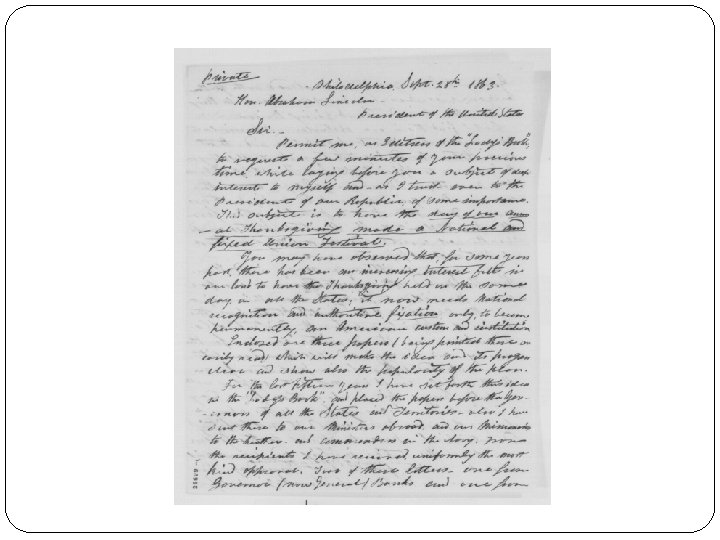 Private
Philadelphia, Sept. 28th 1863.
Hon. Abraham Lincoln
President of the United States
Sir.
Permit me, as Editress of the "Lady's Book",
to request a few minutes of your precious
time, while laying before you a subject of deep
interest to myself and as I trust even to the
President of our Republic, of some importance.
This subject is to have the day of our annu-
al Thanksgiving made a National and
fixed Union Festival.
You may have observed that, for some years
past, there has been an increasing interest felt in
our land to have the Thanksgiving held on the same
day, in all the States; it now needs National
recognition and authoritive fixation, only, to become
permanently, an American custom and institution.
Enclosed are three papers (being printed these are
easily read) which will make the idea and its progress
clear and show also the popularity of the plan.
For the last fifteen years I have set forth this idea
in the "Lady's Book", and placed the papers before the Gov-
ernors of all the States and Territories also I have
sent these to our Ministers abroad, and our Missionaries
to the heathen and commanders in the Navy. From
the recipients I have received, uniformly the most
kind approval. Two of these letters, one from
Governor (now General) Banks and one from